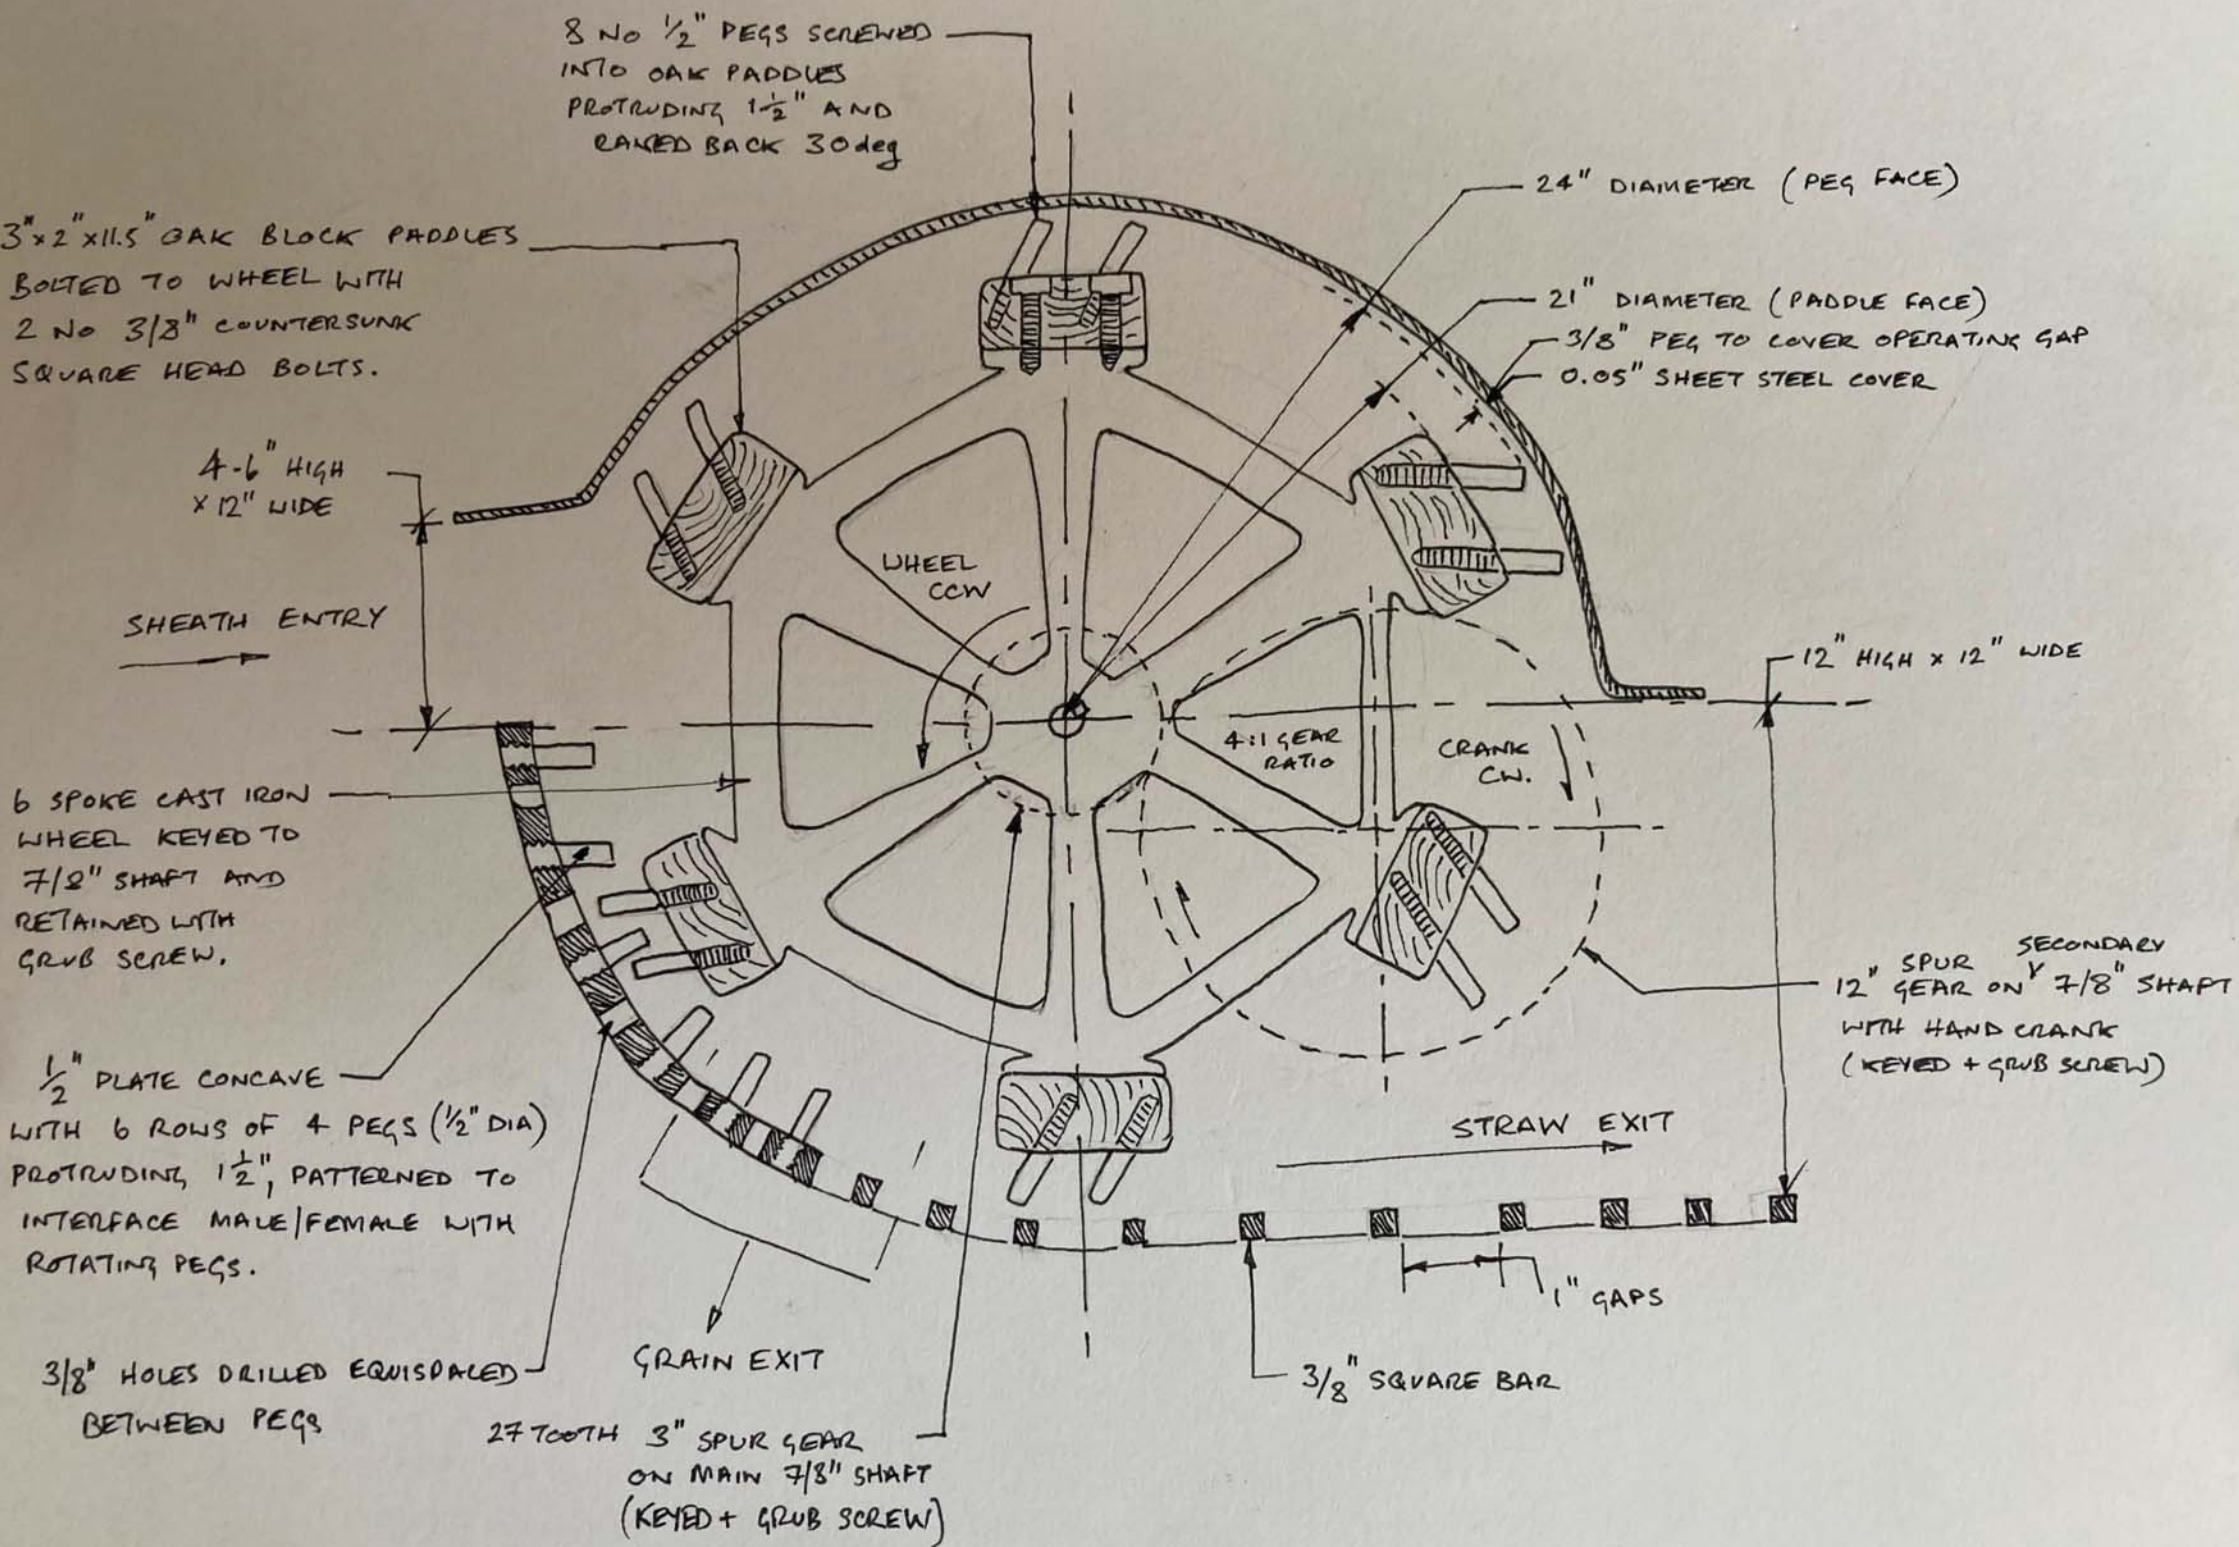 8 No 1/2" PEGS SCREWED
INTO OAK PADDLES
PROTRUDING 1 1/2" AND
RAKED BACK 30deg
3"x2"x11.5" OAK BLOCK PADDLES
BOLTED TO WHEEL WITH
2 No 3/8" COUNTERSUNK
SQUARE HEAD BOLTS.
24" DIAMETER (PEG FACE)
21" DIAMETER (PADDLE FACE)
3/8" PEG TO COVER OPERATING GAP
0.05" SHEET STEEL COVER
4-6" HIGH
x 12" WIDE
SHEATH ENTRY
WHEEL
CCW
12" HIGH x 12" WIDE
4:1 GEAR
RATIO
CRANK
CW.
6 SPOKE CAST IRON
WHEEL KEYED TO
7/8" SHAFT AND
RETAINED WITH
GRUB SCREW.
SECONDARY
12" SPUR
GEAR ON 7/8" SHAFT
WITH HAND CRANK
(KEYED + GRUB SCREW)
1/2" PLATE CONCAVE
WITH 6 ROWS OF 4 PEGS (1/2" DIA)
PROTRUDING 1 1/2", PATTERNED TO
INTERFACE MALE/FEMALE WITH
ROTATING PEGS.
STRAW EXIT
1" GAPS
3/8" HOLES DRILLED EQUISPACED
BETWEEN PEGS
GRAIN EXIT
3/8" SQUARE BAR
27 TOOTH 3" SPUR GEAR
ON MAIN 7/8" SHAFT
(KEYED + GRUB SCREW)